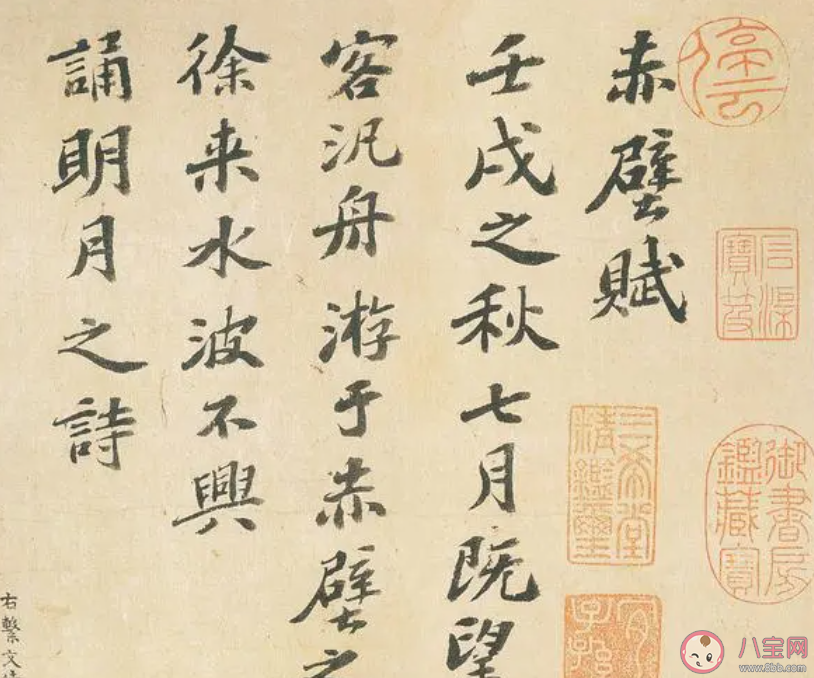 赤壁賦
壬戌之秋七月既望
客汎舟游于赤壁之
徐来水波不興
誦明月之詩
右繫文
三希堂精鑑璽
御書房鑑藏寶
八宝网
www.8bb.com